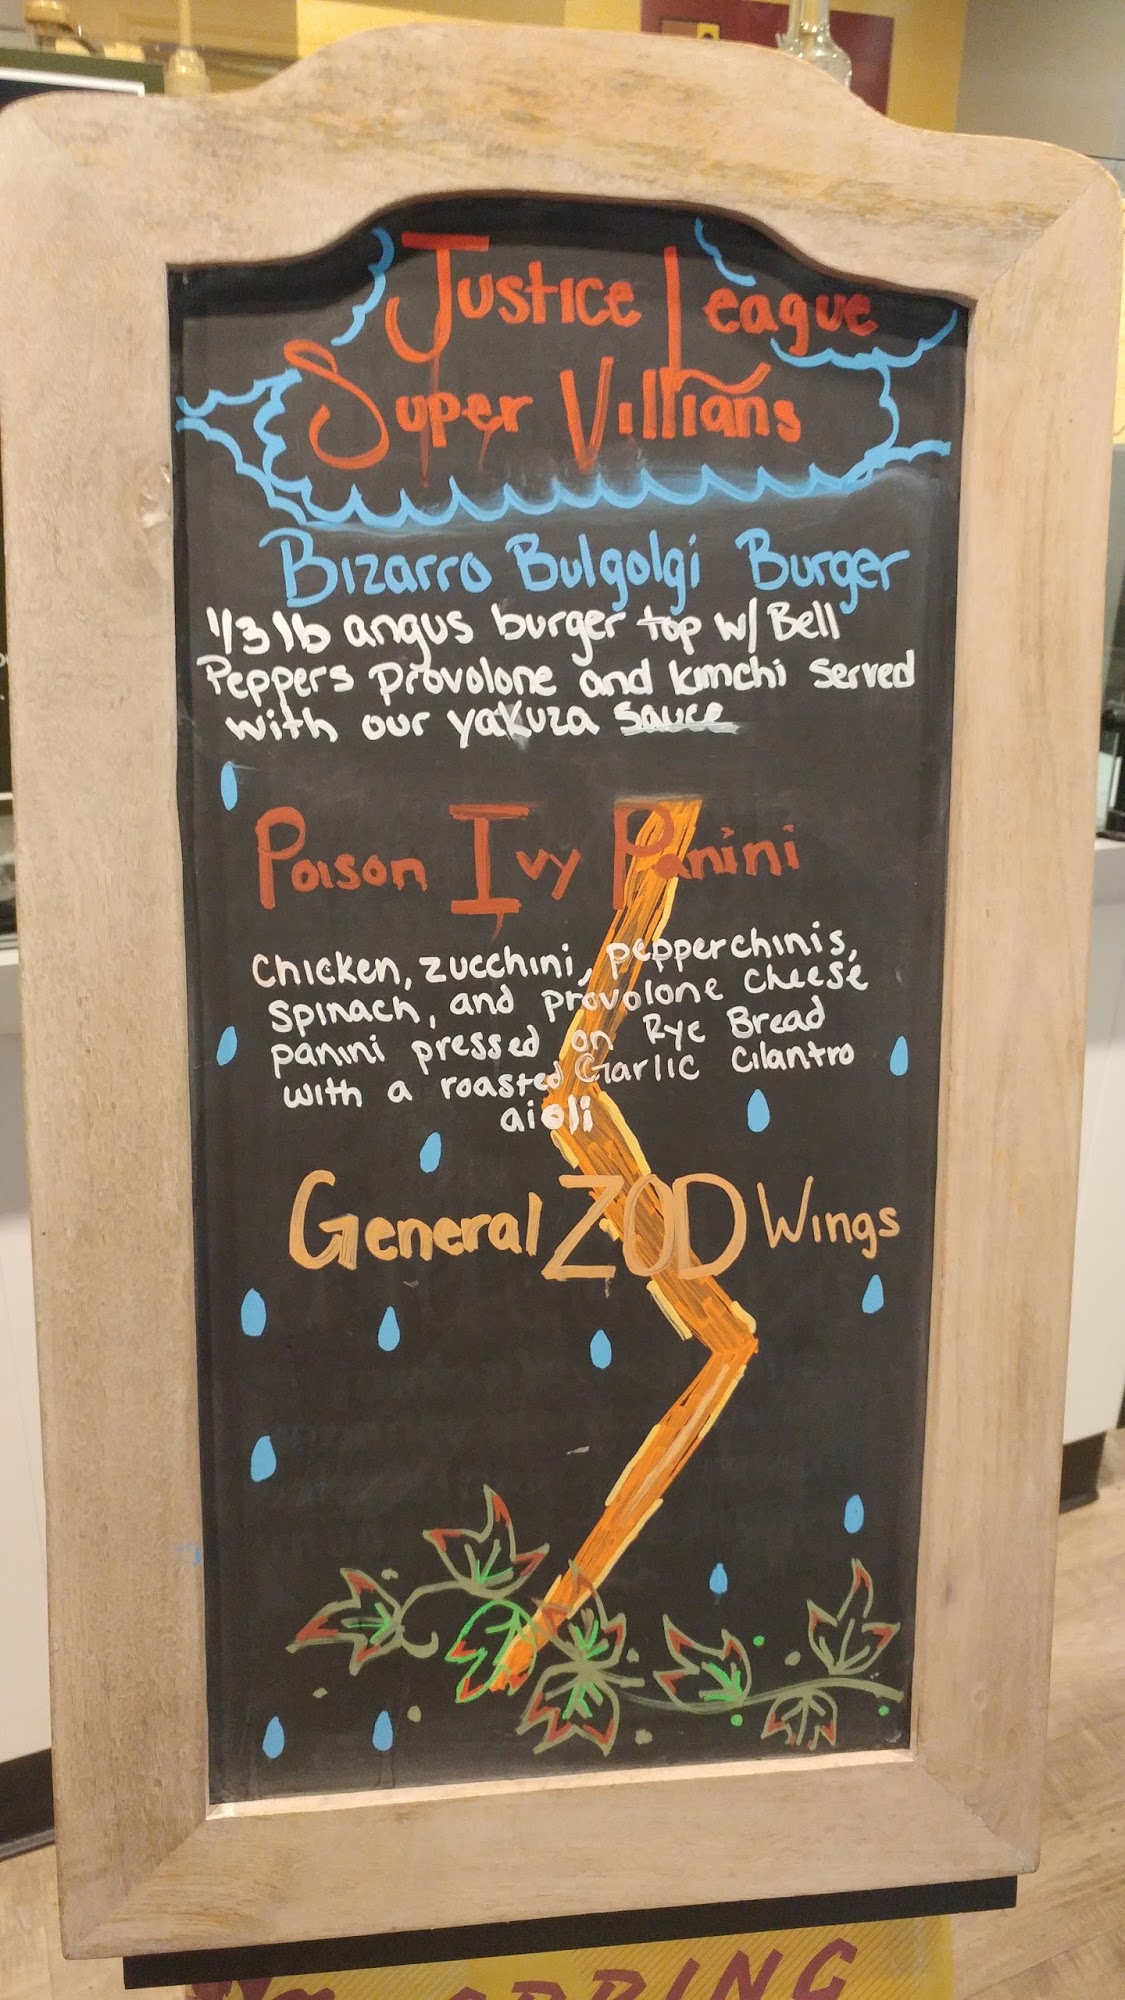 Justice League
Super Villians
Bizarro Bulgolgi Burger
1/3 lb angus burger top w/ Bell
Peppers Provolone and kimchi served
with our yakuza sauce
Poison Ivy Panini
Chicken, zucchini, pepperchinis,
spinach, and provolone cheese
panini pressed on Rye Bread
with a roasted Garlic Cilantro
aioli
General ZOD Wings